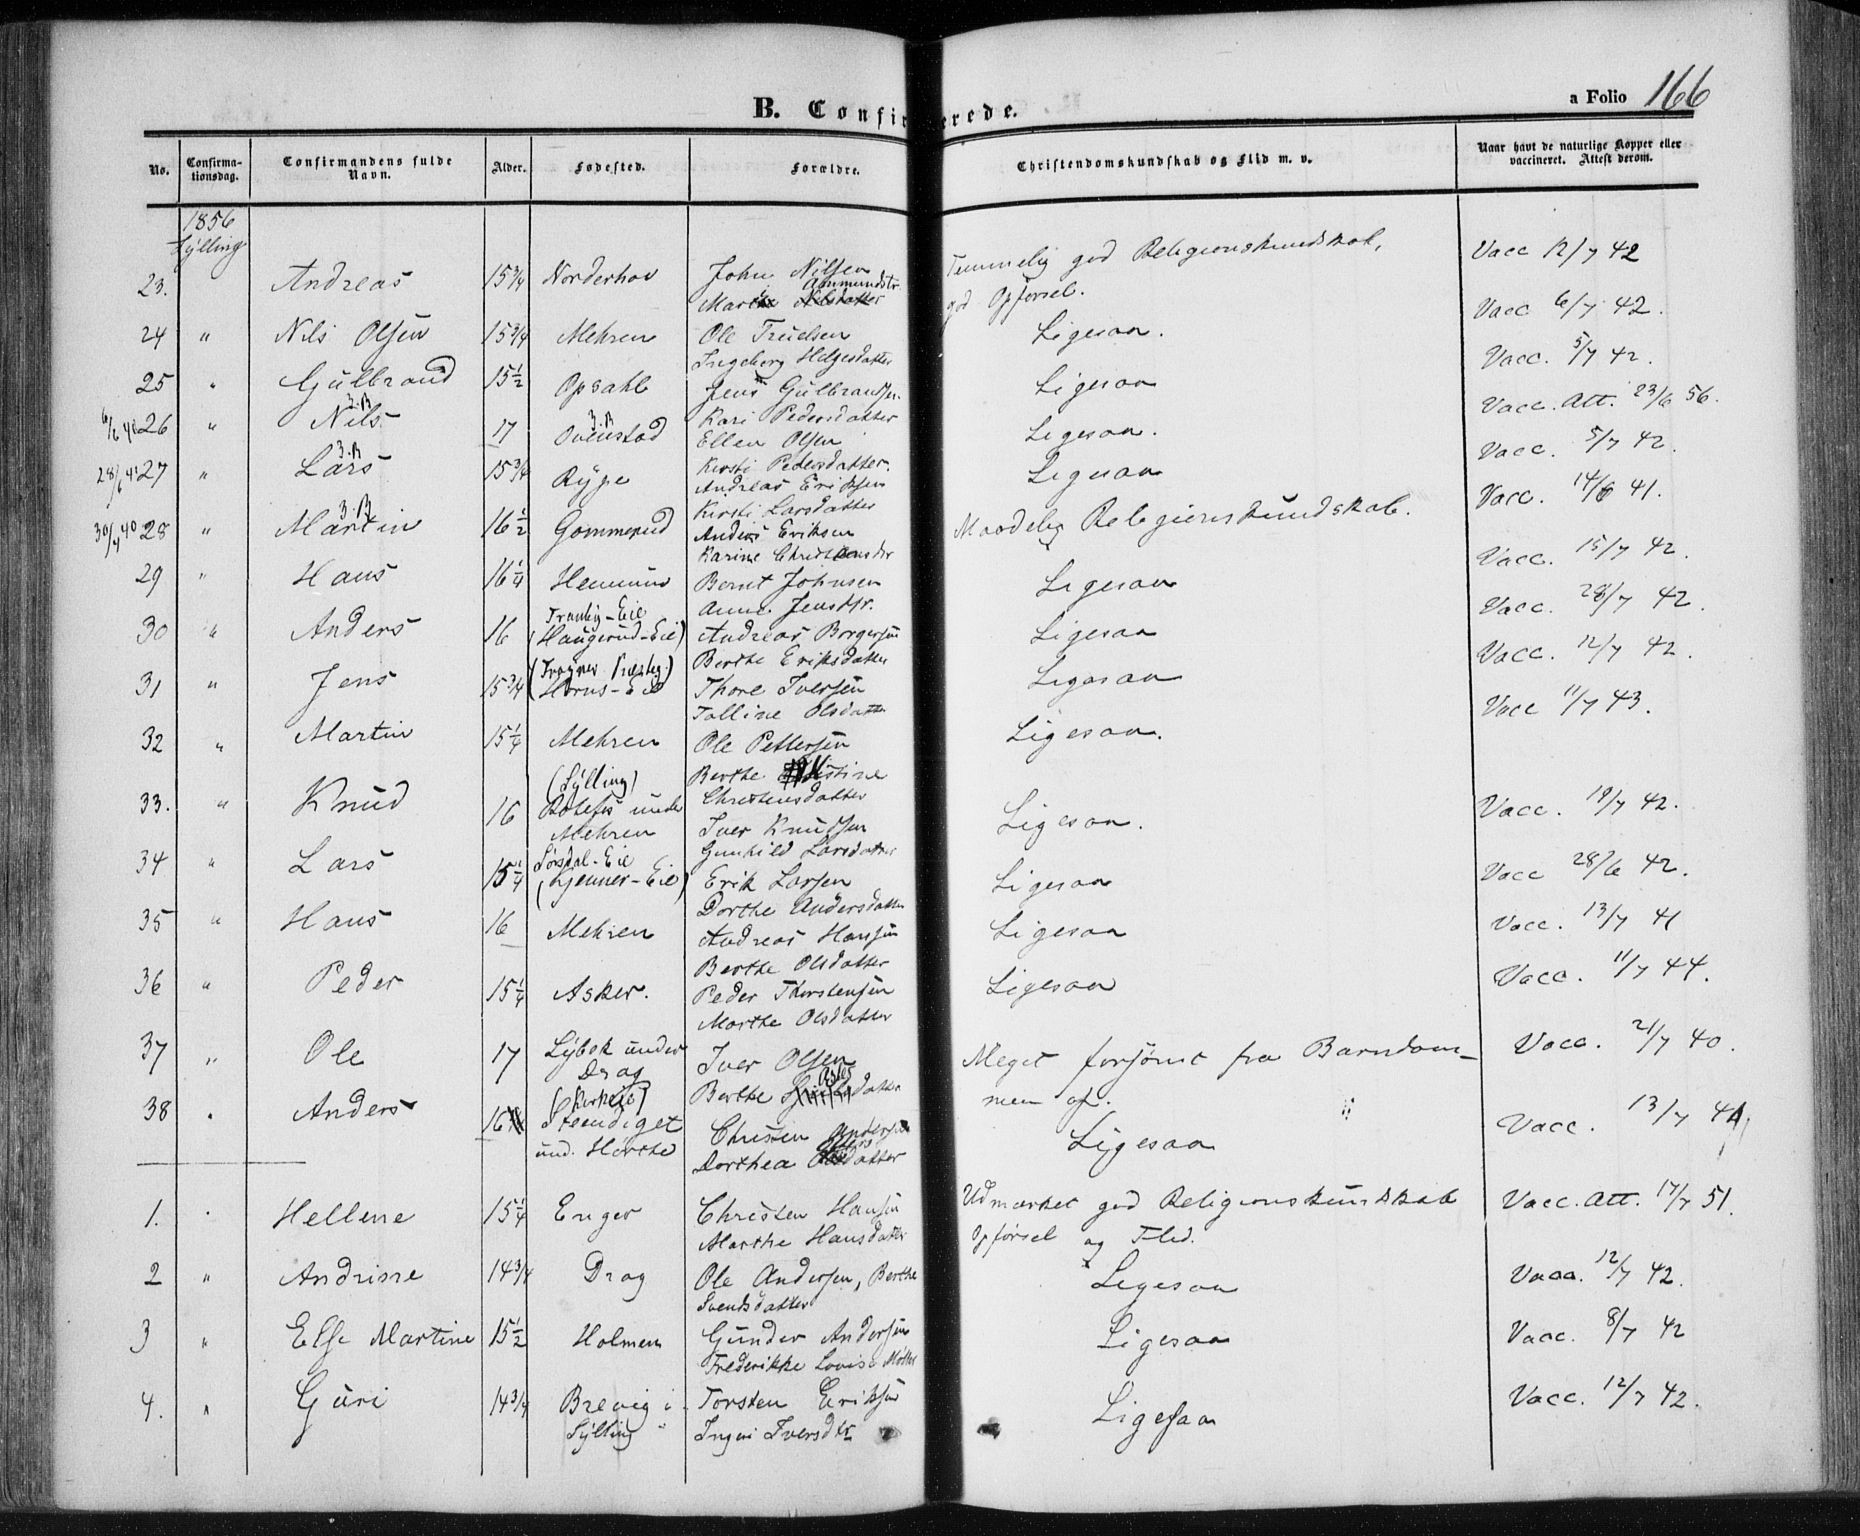 B. Confirmerede.
a Folio 166
No. Confirmationsdag. Confirmandens fulde Navn. Alder. Fødested. Forældre. Christendomskundskab og Flid m. v. Naar havt de naturlige Kopper eller vaccineret. Attest derom.
1856
Sylling
23. Andreas 15 3/4 Norderhov John Nilsen Temmelig god Religionskundskab, Vacc 12/7 42
Amundsdtr.
god Opførsel.
24 " Nils Olsen 15 3/4 Mehren Ole Truelsen Ligesaa. Vacc 6/7 42.
Ingeborg Helgesdatter
25 " Gulbrand 15 1/2 Opsahl Jens Gulbrandsen Ligesaa Vacc. 5/7 42.
Kari Pedersdatter
26 " Nils 17 Svenstad Ellen Olsen Ligesaa. Vacc. Att. 23/6 56.
Kirsti Pedersdatter.
28/6 41 27 " Lars 15 3/4 Rype Andreas Eriksen Ligesaa Vacc. 5/7 42.
Kirsti Larsdatter
30/4 40 28 " Martin 16 1/2 Gommerud Anders Eriksen Maadelig Religionskundskab. Vacc. 14/6 41.
Karine Christensdr
29 " Hans 16 1/4 Hennum Bernt Johnsen Ligesaa Vacc. 15/7 42.
Anne Jensdtr.
Tranby-Eie
30 " Anders 16 (Haugerud-Eie) Andreas Borgersen Ligesaa Vacc. 28/7 42.
Berthe Eriksdatter
31 " Jens 15 3/4 Horns-Eie Thore Iversen Ligesaa Vacc. 12/7 42.
Tolline Olsdatter
32 " Martin 15 1/4 Mehren Ole Pettersen Ligesaa. Vacc 11/7 43.
(Sylling) Berthe
Christensdatter
33. " Knud 16 under Mehren Iver Knudsen Ligesaa. Vacc. 19/7 42.
Gunhild Larsdatter
34 " Lars 15 1/4 Sørsdal-Eie (Kjenner-Eie) Erik Larsen Ligesaa Vacc 28/6 42.
Dorthe Andersdatter
35 " Hans 16 Mehren Andreas Hansen Ligesaa Vacc. 13/7 41
Berthe Olsdatter
36 " Peder 15 1/4 Asker. Peder Thorstensen Ligesaa Vacc. 11/7 44.
Marthe Olsdatter
37 " Ole 17 under Drag Iver Olsen Meget forsømt fra Barndom- Vacc. 21/7 40.
Berthe
men af.
38 " Anders 16 Steendiget und. Hørthe Christen Andersen Ligesaa Vacc. 13/7 41
Dorthea
1. " Hellene 15 1/4 Enger Christen Hansen Udmærket god Religionskundskab Vacc. Att. 17/7 51.
Marthe Hansdatter Opførsel og Flid.
2 " Andrine 14 3/4 Drag Ole Andersen, Berthe Ligesaa Vacc. 12/7 42.
Svendsdatter
3 " Else Martine 15 1/2 Holmen Gunder Andersen Ligesaa Vacc. 8/7 42
Frederikke Lovise Møller
4. " Guri 14 3/4 Brevig i Torsten Eriksen Ligesaa Vacc. 12/7 42.
Sylling Ingri Iversdtr